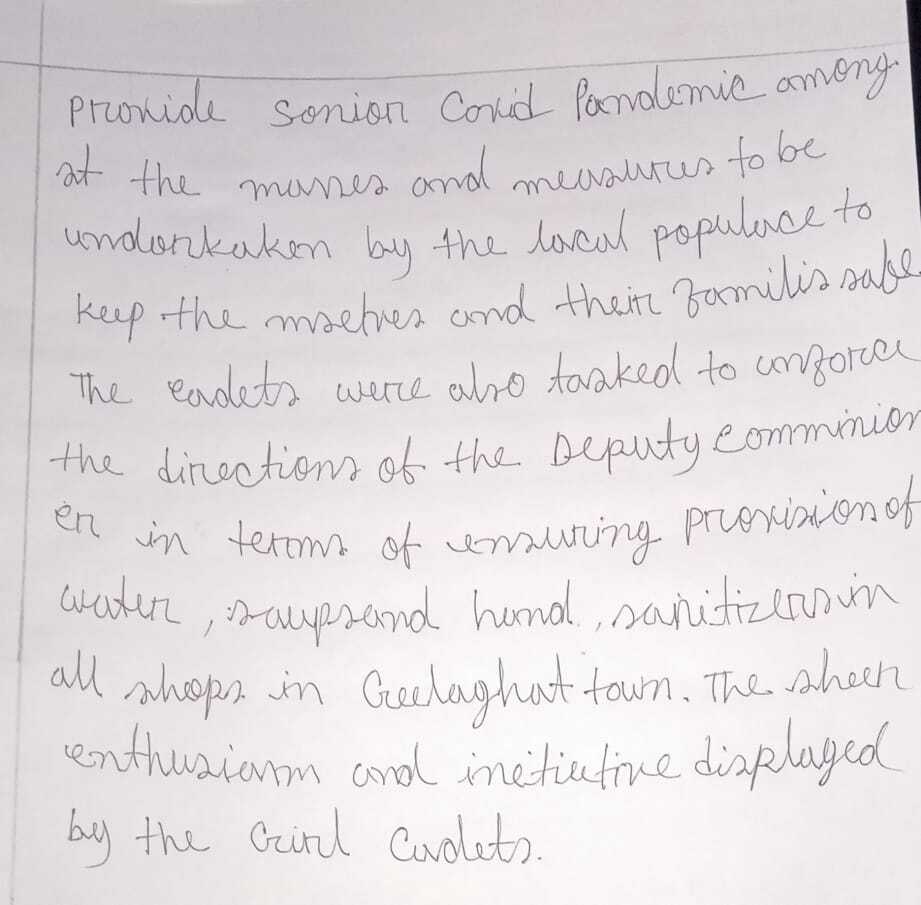 Provide Senior Covid Pandemic among
st the masses and measures to be
undertaken by the local populace to
keep the mselves and their familis safe
The cadets were also tasked to enforce
the directions of the Deputy Commission
er in terms of ensuring provision of
water, soaps and hand, sanitizers in
all shops in Geelaghat town. The sheer
enthusiasm and inetiative displayed
by the Girl Cadets.